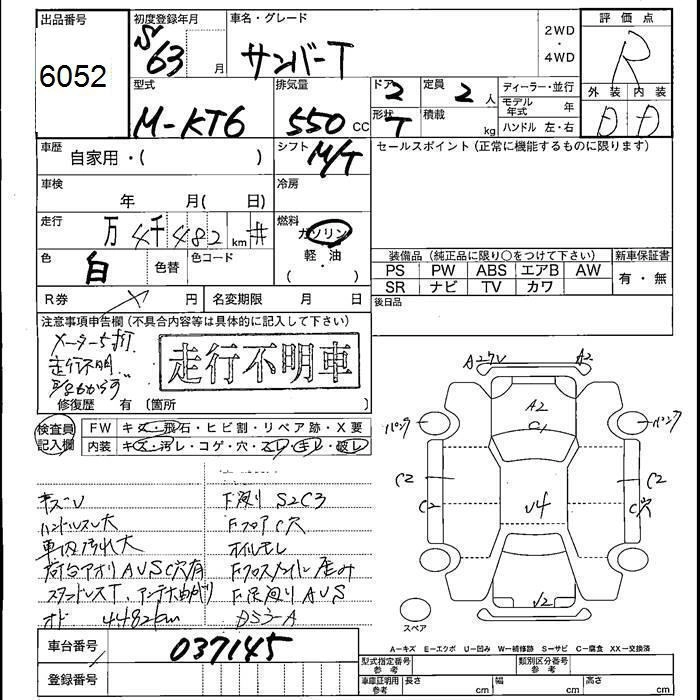 出品番号
6052
初度登録年月
S
63 月
車名・グレード
サンバーT
2WD
・
4WD
評価点
R
外装 内装
D D
型式
M-KT6
排気量
550 CC
ドア
2
形状
T
定員
2 人
積載
kg
ディーラー・並行
モデル年式 年
ハンドル 左・右
車歴
自家用・( )
シフト
M/T
セールスポイント(正常に機能するものに限ります)
車検
年 月( 日)
冷房
走行
万 4千482 km #
燃料
ガソリン
軽油
( )
色
白
色替
色コード
装備品(純正品に限り○をつけて下さい)
新車保証書
PS PW ABS エアB AW
SR ナビ TV カワ
有・無
R券 円
名変期限 月 日
後日品
注意事項申告欄(不具合内容等は具体的に記入して下さい)
メーター5打
走行不明
走行不明車
修復歴 有 (箇所 )
検査員
記入欄
FW キズ・飛石・ヒビ割・リペア跡・X要
内装 キズ・汚レ・コゲ・穴・スレ・キレ・破レ
キズU
F廻り S2C3
ハンドルスレ大
FフロアC穴
車内汚れ大
オイルモレ
荷台アオリAUSC穴有
スタッドレスT、アンテナ曲がり
オド 4482km
037145
車台番号
登録番号
A2
A2
C1
パンク
パンク
C2
C2
C2
C穴
U4
U2
スペア
A-キズ E-エクボ U-凹み W-補修跡 S-サビ C-腐食 XX-交換済
型式指定番号
参考
類別区分番号
参考
車庫証明用
参考
長さ cm
幅 cm
高さ cm